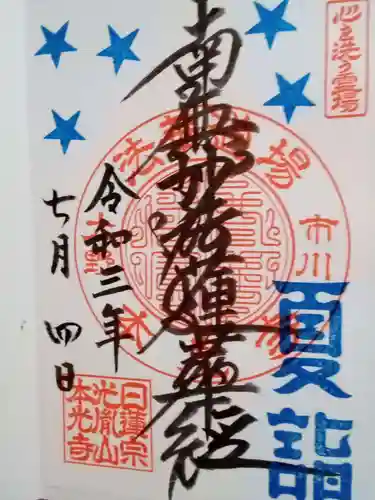 心を洗う霊場
夏詣
南無妙法蓮華経
場
市川
法
令和三年
七月四日
日蓮宗
光胤山
本光寺